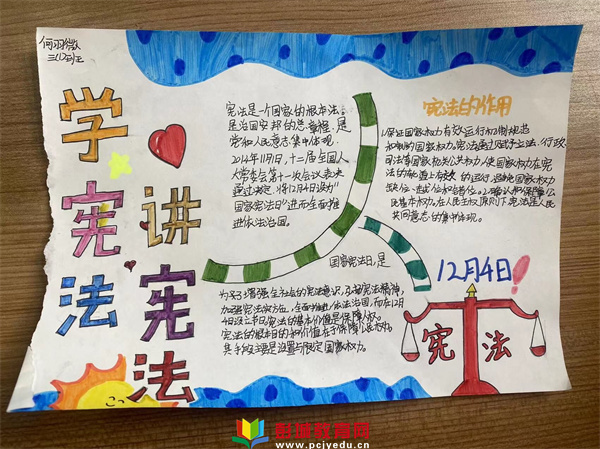 何羽微
三(12)班
学宪法
讲宪法
宪法是一个国家的根本法。
是治国安邦的总章程,是
党和人民意志集中体现。
2014年11月1日,十二届全国人
大常委会第十一次会议表决
通过决定,将12月4日设为"
国家宪法日"进而全面推
进依法治国。
宪法的作用
1.保证国家权力有效运行
宪法通过赋予立法、行政
司法等国家机关公共权力,使国家权力在宪
缺位、越位和错位。2.确认和保障公
民基本权力。在人民主权原则下宪法是人民
共同意志的集中体现。
国家宪法日,是
为了增强全社会的宪法意识,弘扬宪法精神,
加强宪法实施,全面推进依法治国,而在12月
4日设立节日宪法的基本价值是保障人权。
宪法的根本目的和价值在于保障人民权力。
其手段主要是设置与限定国家权力。
12月4日!
宪 法
鹏城教育网
www.pcjyedu.cn